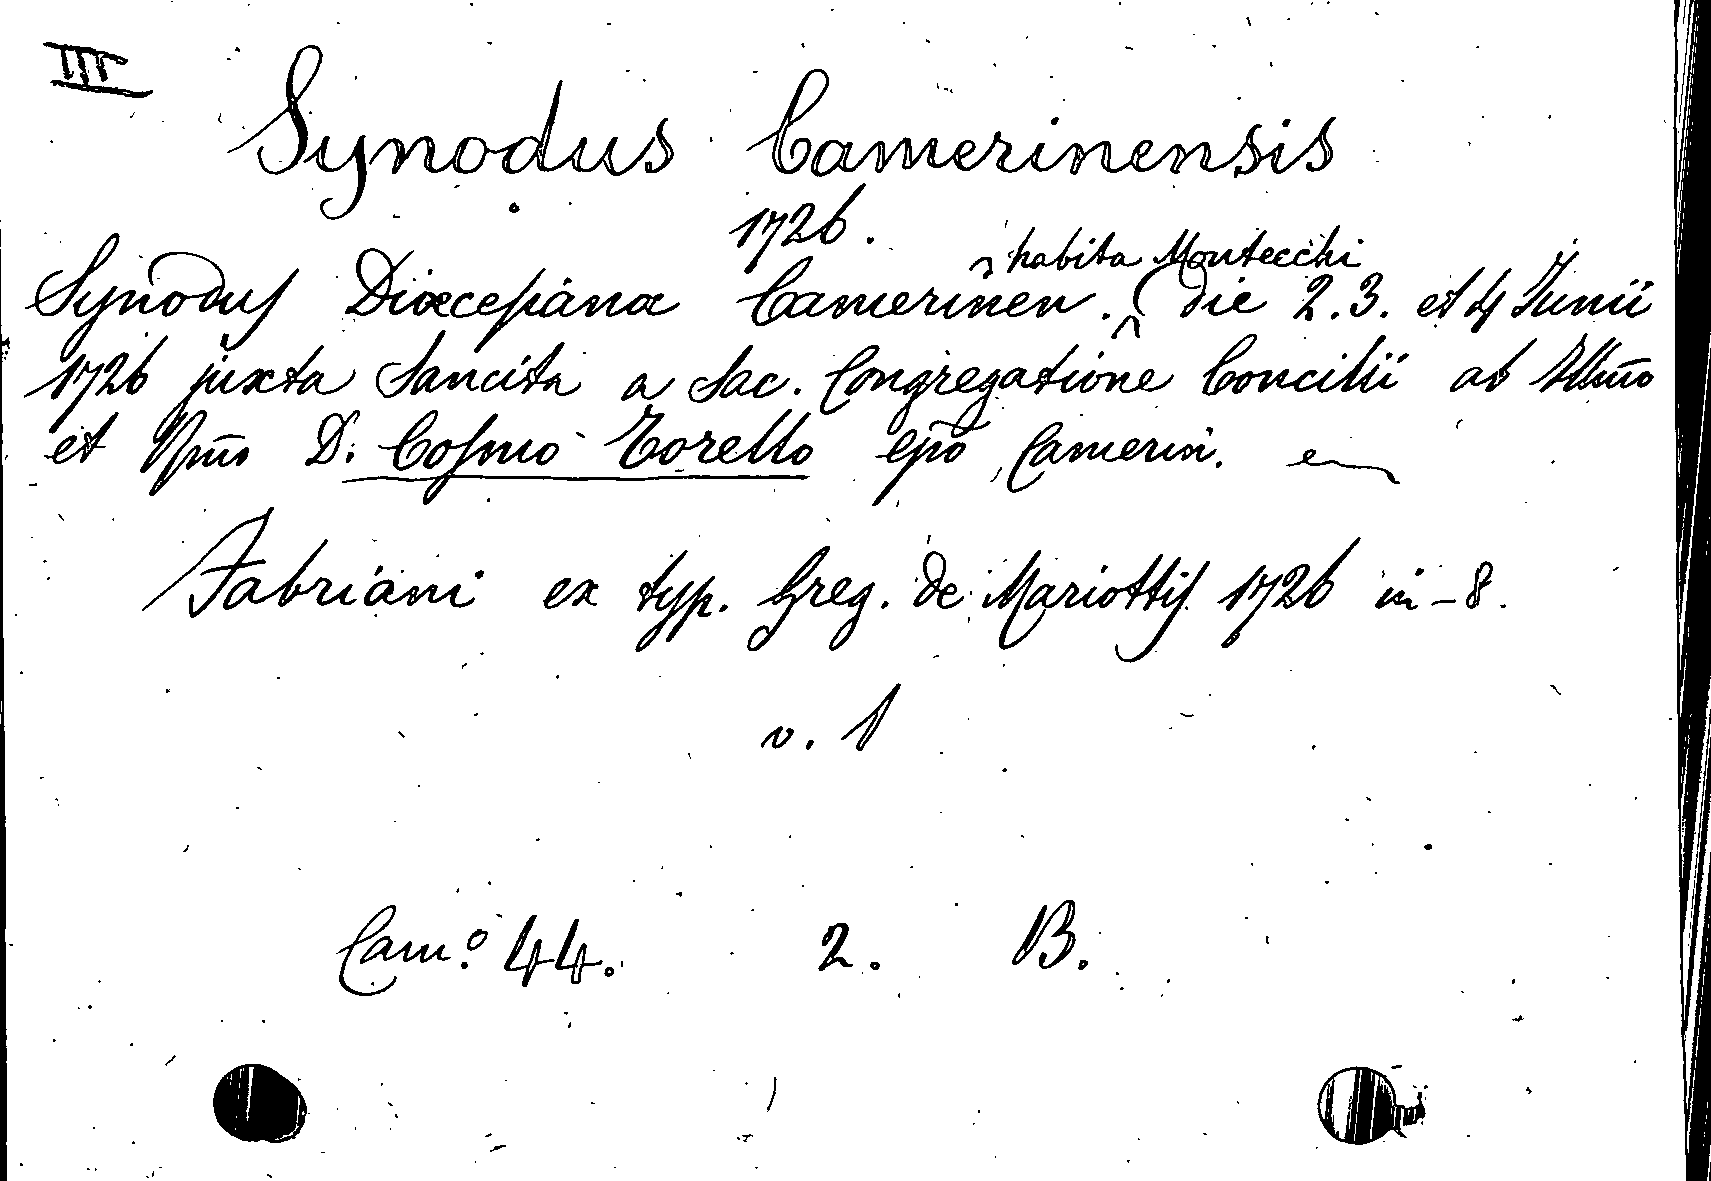 III
Synodus Camerinensis
1726.
habita Montecchi
Synodus Dioecesana Camerinen. die 2. 3. et 4 Junii
1726 juxta Sancita a Sac. Congregatione Concilii ab Illm̃o
et Rm̃o D. Cosmo Torello epõ Camerin.
Fabriani ex typ. Greg. de Mariottis 1726 in-8.
v. 1
Camº 44. 2. B.